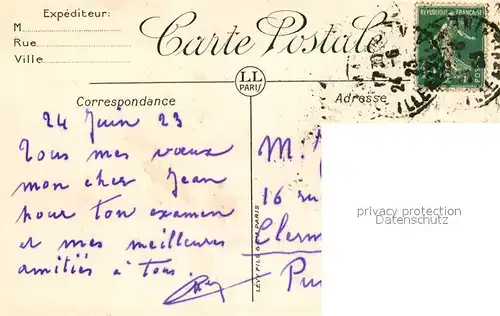 Expéditeur:
M
Rue
Ville
Carte Postale
RÉPUBLIQUE FRANÇAISE
LL
PARIS
Correspondance
Adresse
24 Juin 23
Tous mes vœux
mon cher Jean
pour ton examen
et mes meilleures
amitiés à tous.
M.
16 ru
Clerm
Pu
LÉVY FILS & Cie PARIS
privacy protection
Datenschutz